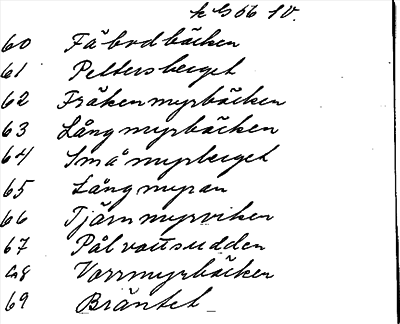 60 Fäbodbäcken
61 Peltersberget
62 Fräkenmyrbäcken
63 Långmyrbäcken
64 Småmyrberget
65 Långmyran
66 Tjärnmyrviken
67 Pålvoutsudden
68 Vorrmyrbäcken
69 Bräntet